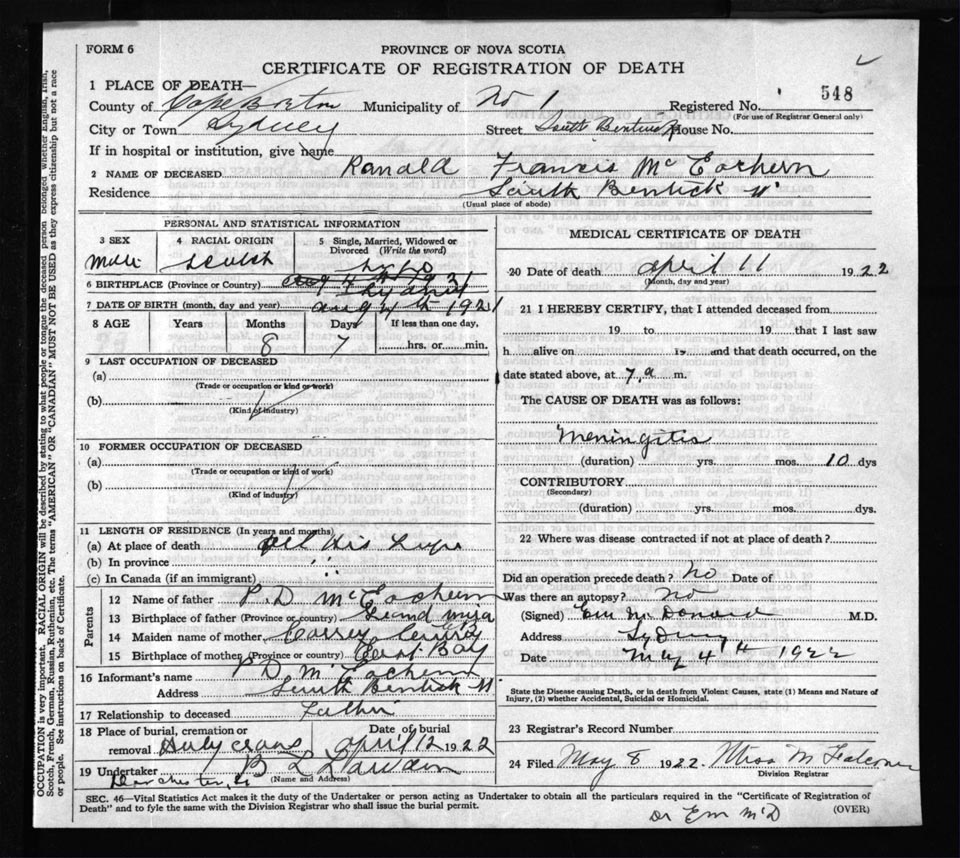 FORM 6
PROVINCE OF NOVA SCOTIA
CERTIFICATE OF REGISTRATION OF DEATH
1 PLACE OF DEATH—
County of Cape Breton Municipality of No 1 Registered No. 548
(For use of Registrar General only)
City or Town Sydney Street South Bentinck House No.
If in hospital or institution, give name
2 NAME OF DECEASED Ranald Francis McEachern
Residence South Bentick St
(Usual place of abode)
PERSONAL AND STATISTICAL INFORMATION
3 SEX 4 RACIAL ORIGIN 5 Single, Married, Widowed or Divorced (Write the word)
Male Scotch
6 BIRTHPLACE (Province or Country) Sydney
7 DATE OF BIRTH (month, day and year) Aug 4th 1921
8 AGE Years Months Days If less than one day,
8 7 hrs. or min.
9 LAST OCCUPATION OF DECEASED
(a)
(Trade or occupation or kind of work)
(b)
(Kind of industry)
10 FORMER OCCUPATION OF DECEASED
(a)
(Trade or occupation or kind of work)
(b)
(Kind of industry)
11 LENGTH OF RESIDENCE (In years and months)
(a) At place of death All His Life
(b) In province "
(c) In Canada (if an immigrant) "
Parents
12 Name of father P.D McEachern
13 Birthplace of father (Province or country) Grand Mira
14 Maiden name of mother
15 Birthplace of mother (Province or country) East Bay
16 Informant's name P D McEachern
Address South Bentick St
17 Relationship to deceased Father
18 Place of burial, cremation or removal Holy Cross Date of burial April 12 1922
19 Undertaker B L
(Name and Address)
MEDICAL CERTIFICATE OF DEATH
20 Date of death April 11 1922
(Month, day and year)
21 I HEREBY CERTIFY, that I attended deceased from
19 to 19 that I last saw
h alive on 19 and that death occurred, on the
date stated above, at 7 a m.
The CAUSE OF DEATH was as follows:
Meningitis
(duration) yrs. mos. 10 dys
CONTRIBUTORY
(Secondary)
(duration) yrs. mos. dys.
22 Where was disease contracted if not at place of death?
Did an operation precede death? No Date of
Was there an autopsy? No
(Signed) Em McDonald M.D.
Address Sydney
Date May 4th 1922
State the Disease causing Death, or in death from Violent Causes, state (1) Means and Nature of Injury, (2) whether Accidental, Suicidal or Homicidal.
23 Registrar's Record Number
24 Filed May 8 1922. Miss M Falconer
Division Registrar
SEC. 46—Vital Statistics Act makes it the duty of the Undertaker or person acting as Undertaker to obtain all the particulars required in the "Certificate of Registration of
Death" and to fyle the same with the Division Registrar who shall issue the burial permit.
(OVER)
Dr Em McD
OCCUPATION is very important. RACIAL ORIGIN will be described by stating to what people or tongue the deceased person belonged whether English, Irish,
Scotch, French, German, Russian, Ruthenian, etc. The terms "AMERICAN" OR "CANADIAN" MUST NOT BE USED as they express citizenship but not a race
or people. See instructions on back of Certificate.